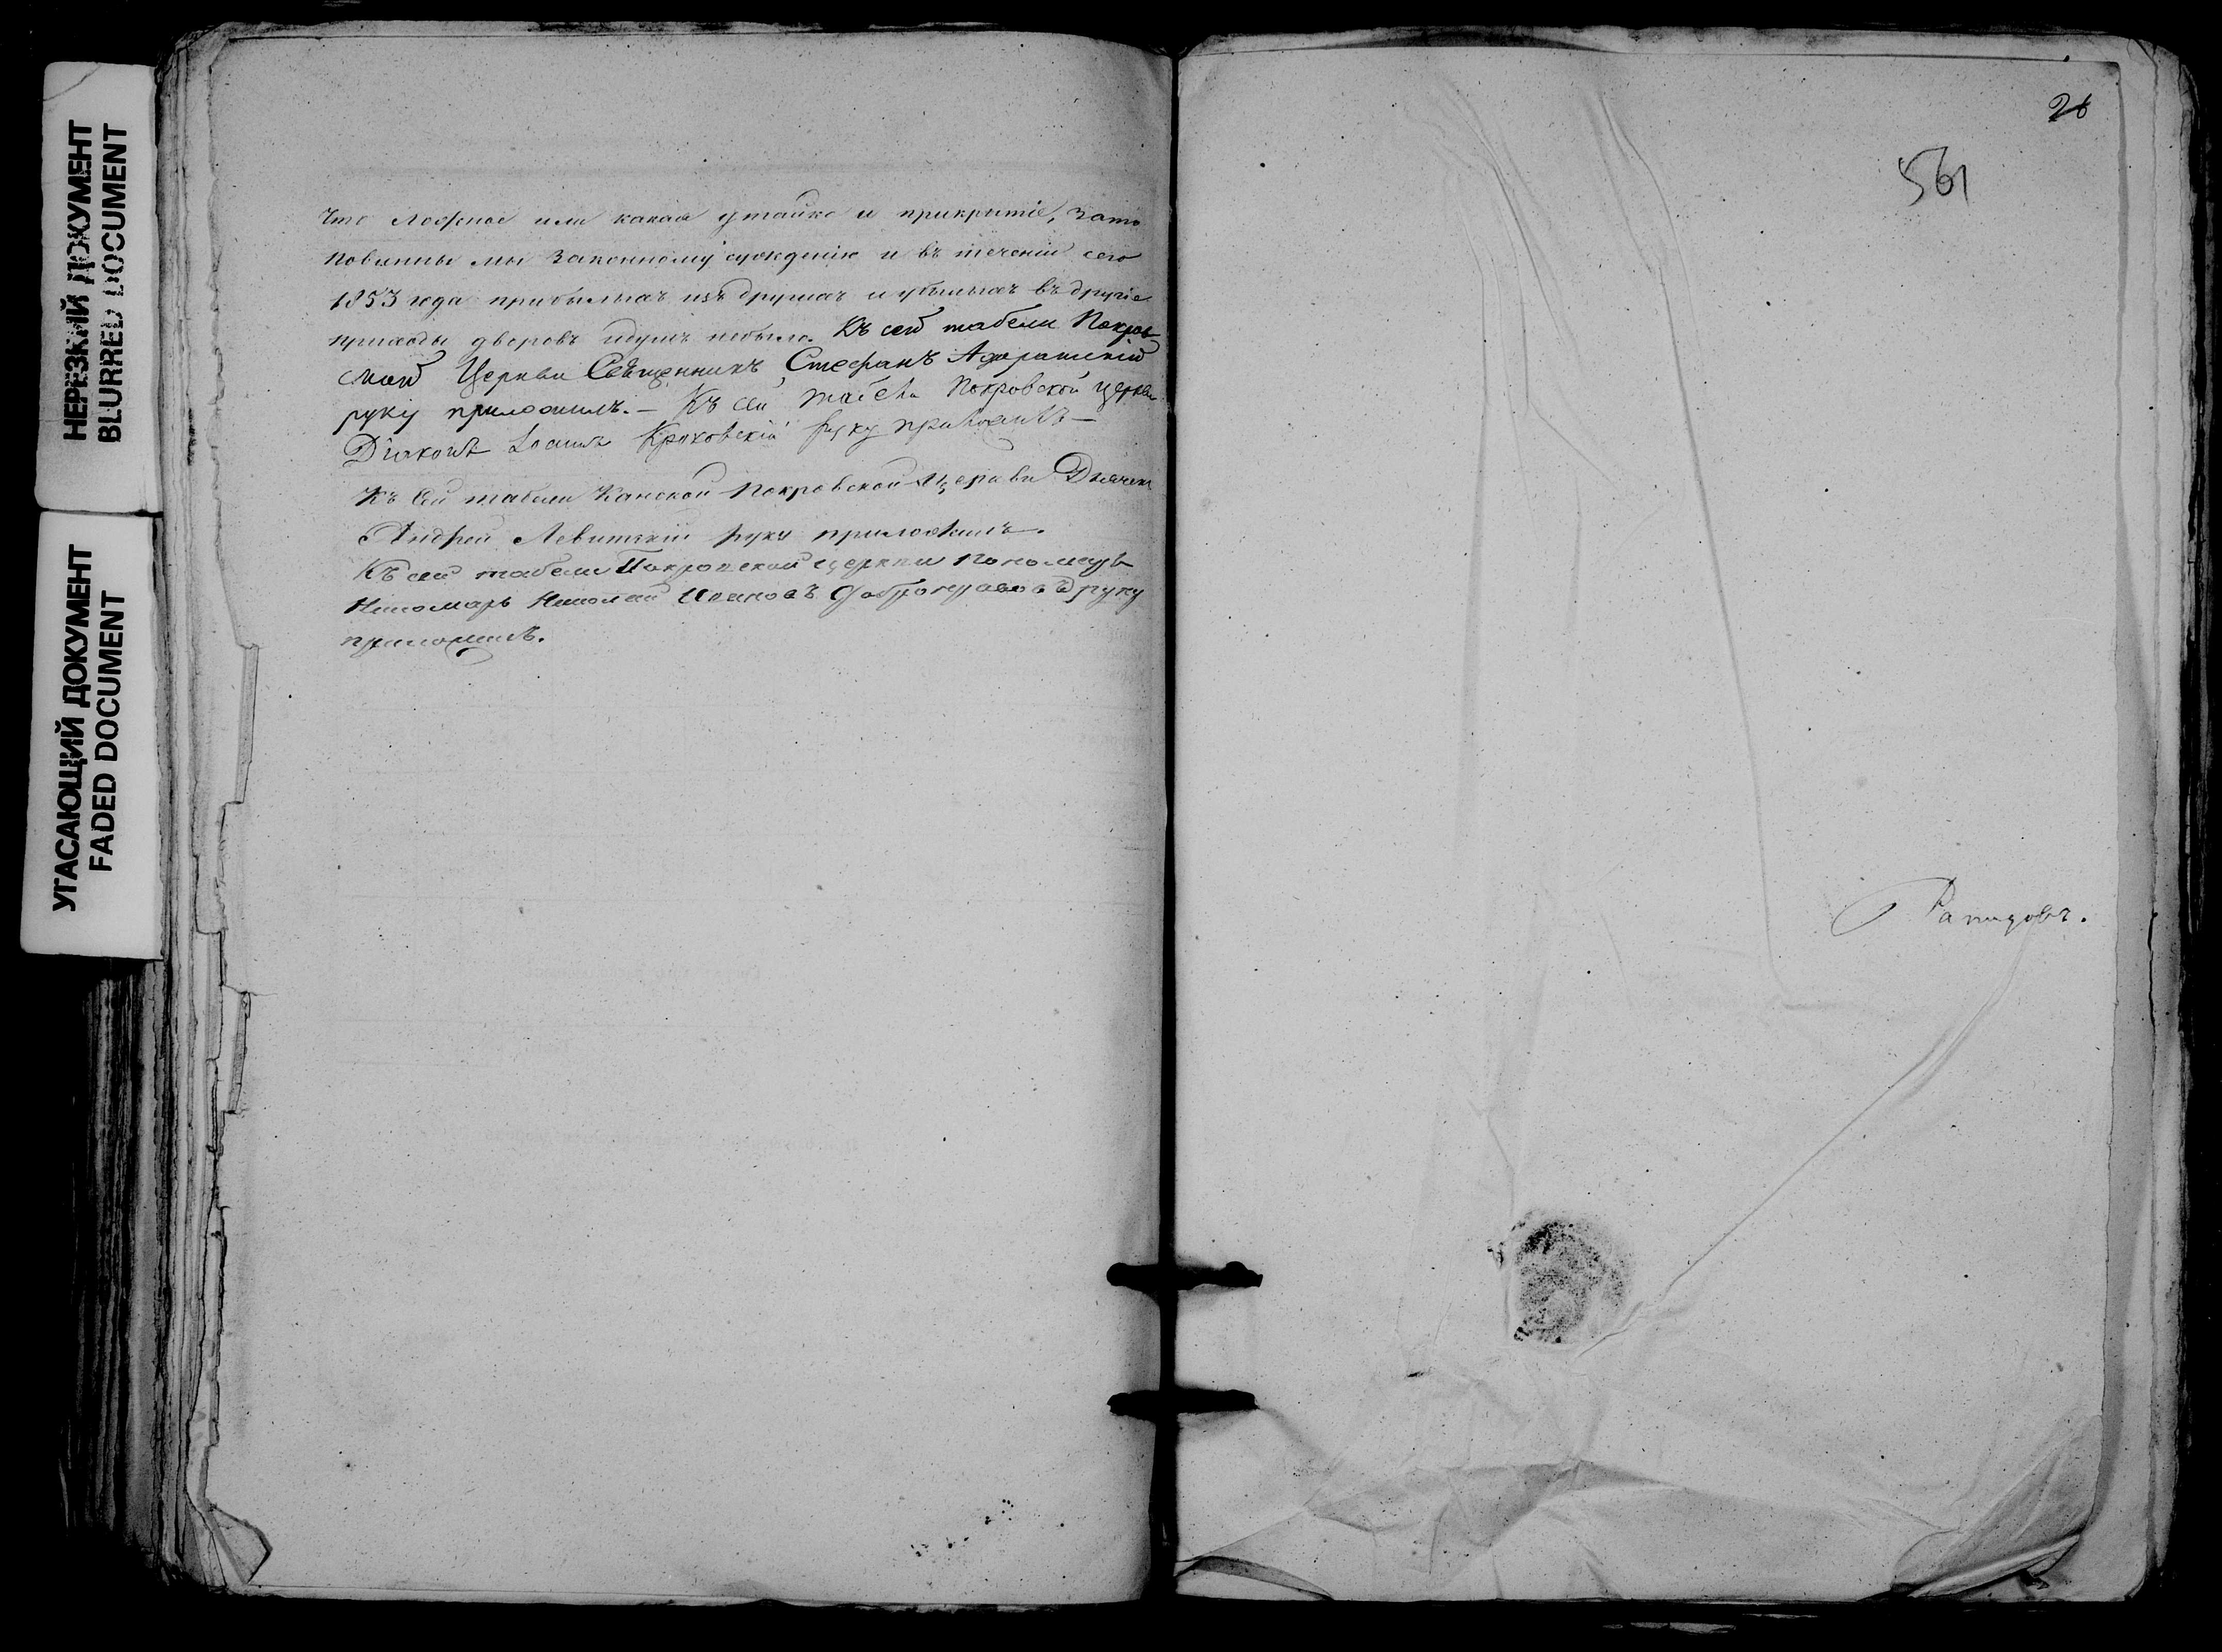 НЕРЕЗКИЙ ДОКУМЕНТ
BLURRED DOCUMENT
УГАСАЮЩИЙ ДОКУМЕНТ
FADED DOCUMENT
что ложное или какая утайка и прикрытіе, зато
повинны мы законному сужденію и въ теченіи сего
1853 года прибылыхъ изъ другихъ и убылыхъ въ другіе
приходы дворовъ и душъ небыло. Къ сей табели Покров-
ской Церкви Священникъ Стефанъ
руку приложилъ. – Къ сей табели Покровской церкви
Діаконъ Іоаннъ Крюковскій руку приложилъ –
Къ сей табели Канской Покровской Церкви Дьячекъ
Андрей Левитскій руку приложилъ.
Къ сей табели Покровской церкви пономарь
Пономарь Николай Ивановъ руку
приложилъ.
26
561